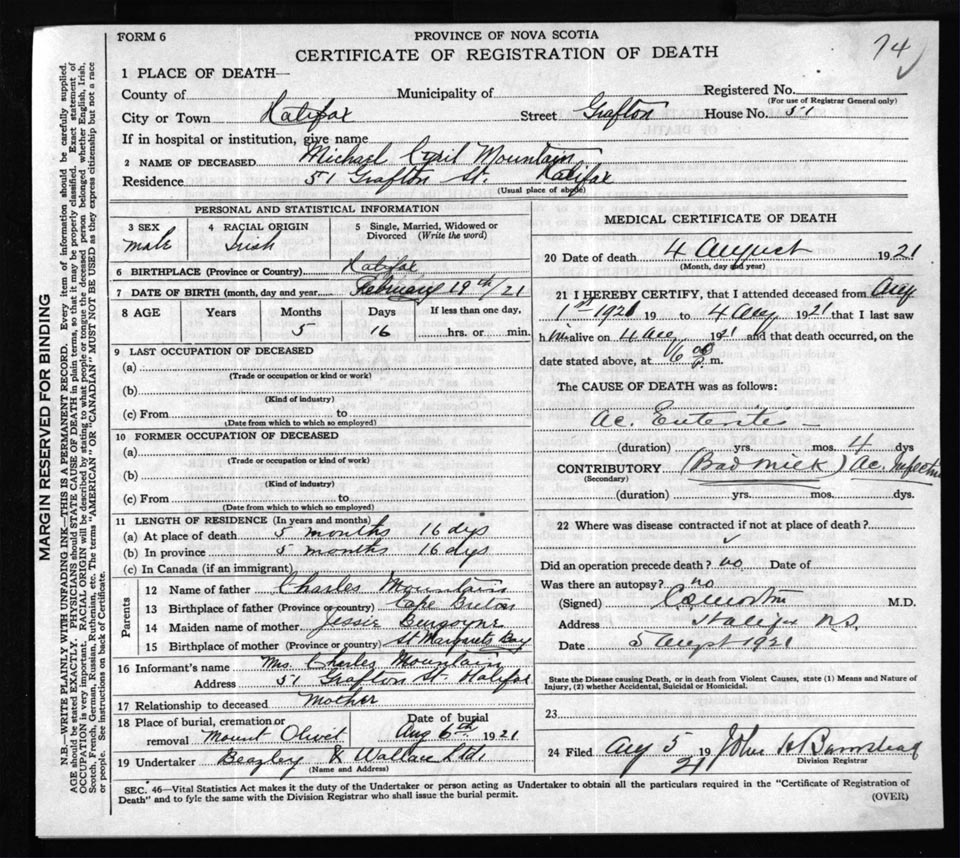 FORM 6
PROVINCE OF NOVA SCOTIA
CERTIFICATE OF REGISTRATION OF DEATH
74
1 PLACE OF DEATH—
County of Municipality of Registered No.
(For use of Registrar General only)
City or Town Halifax Street Grafton House No. 51
If in hospital or institution, give name
2 NAME OF DECEASED Michael Cyril Mountain
Residence 51 Grafton St. Halifax
(Usual place of abode)
PERSONAL AND STATISTICAL INFORMATION
3 SEX 4 RACIAL ORIGIN 5 Single, Married, Widowed or
Divorced (Write the word)
male Irish
6 BIRTHPLACE (Province or Country) Halifax
7 DATE OF BIRTH (month, day and year February 19th/21
8 AGE Years Months Days If less than one day,
5 16 hrs. or min.
9 LAST OCCUPATION OF DECEASED
(a)
(Trade or occupation or kind or work)
(b)
(Kind of industry)
(c) From to
(Date from which to which so employed)
10 FORMER OCCUPATION OF DECEASED
(a)
(Trade or occupation or kind of work)
(b)
(Kind of industry)
(c) From to
(Date from which to which so employed)
11 LENGTH OF RESIDENCE (In years and months)
(a) At place of death 5 months 16 dys
(b) In province 5 months 16 dys
(c) In Canada (if an immigrant)
Parents
12 Name of father Charles Mountain
13 Birthplace of father (Province or country) Cape Breton
14 Maiden name of mother Jessie Burgoyne
15 Birthplace of mother (Province or country) St Margarets Bay
16 Informant's name Mrs. Charles Mountain
Address 51 Grafton St. Halifax
17 Relationship to deceased Mother
18 Place of burial, cremation or Date of burial
removal Mount Olivet Aug 6th 1921
19 Undertaker Beazley & Wallace Ltd.
(Name and Address)
MEDICAL CERTIFICATE OF DEATH
20 Date of death 4 August 1921
(Month, day and year)
21 I HEREBY CERTIFY, that I attended deceased from Aug
1st 1921 19 to 4 Aug 1921 that I last saw
him alive on 4 Aug 1921 and that death occurred, on the
date stated above, at 6 p m.
The CAUSE OF DEATH was as follows:
Ac. Enteritis —
(duration) yrs. mos. 4 dys
CONTRIBUTORY (Bad milk) Ac. Infection
(Secondary)
(duration) yrs. mos. dys.
22 Where was disease contracted if not at place of death?
Did an operation precede death? no Date of
Was there an autopsy? no
(Signed) M.D.
Address Halifax N.S.
Date 5 Augt 1921
State the Disease causing Death, or in death from Violent Causes, state (1) Means and Nature of
Injury, (2) whether Accidental, Suicidal or Homicidal.
23
24 Filed Aug 5 19 21 John H Barnstead
Division Registrar
SEC. 46—Vital Statistics Act makes it the duty of the Undertaker or person acting as Undertaker to obtain all the particulars required in the "Certificate of Registration of
Death" and to fyle the same with the Division Registrar who shall issue the burial permit.
(OVER)
MARGIN RESERVED FOR BINDING
N.B.—WRITE PLAINLY WITH UNFADING INK—THIS IS A PERMANENT RECORD. Every item of information should be carefully supplied.
AGE should be stated EXACTLY. PHYSICIANS should STATE CAUSE OF DEATH in plain terms, so that it may be properly classified. Exact statement of
OCCUPATION is very important. RACIAL ORIGIN will be described by stating to what people or tongue the deceased person belonged whether English, Irish,
Scotch, French, German, Russian, Ruthenian, etc. The terms "AMERICAN" OR "CANADIAN" MUST NOT BE USED as they express citizenship but not a race
or people. See instructions on back of Certificate.